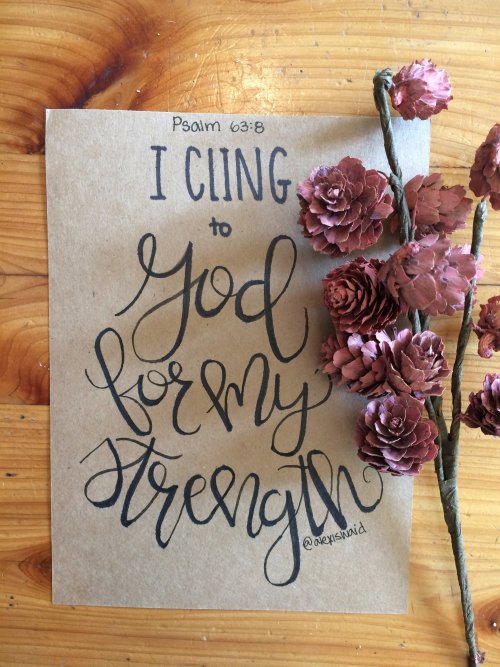 Psalm 63:8
I CLING
to
God
for my
strength
@alexiswaid